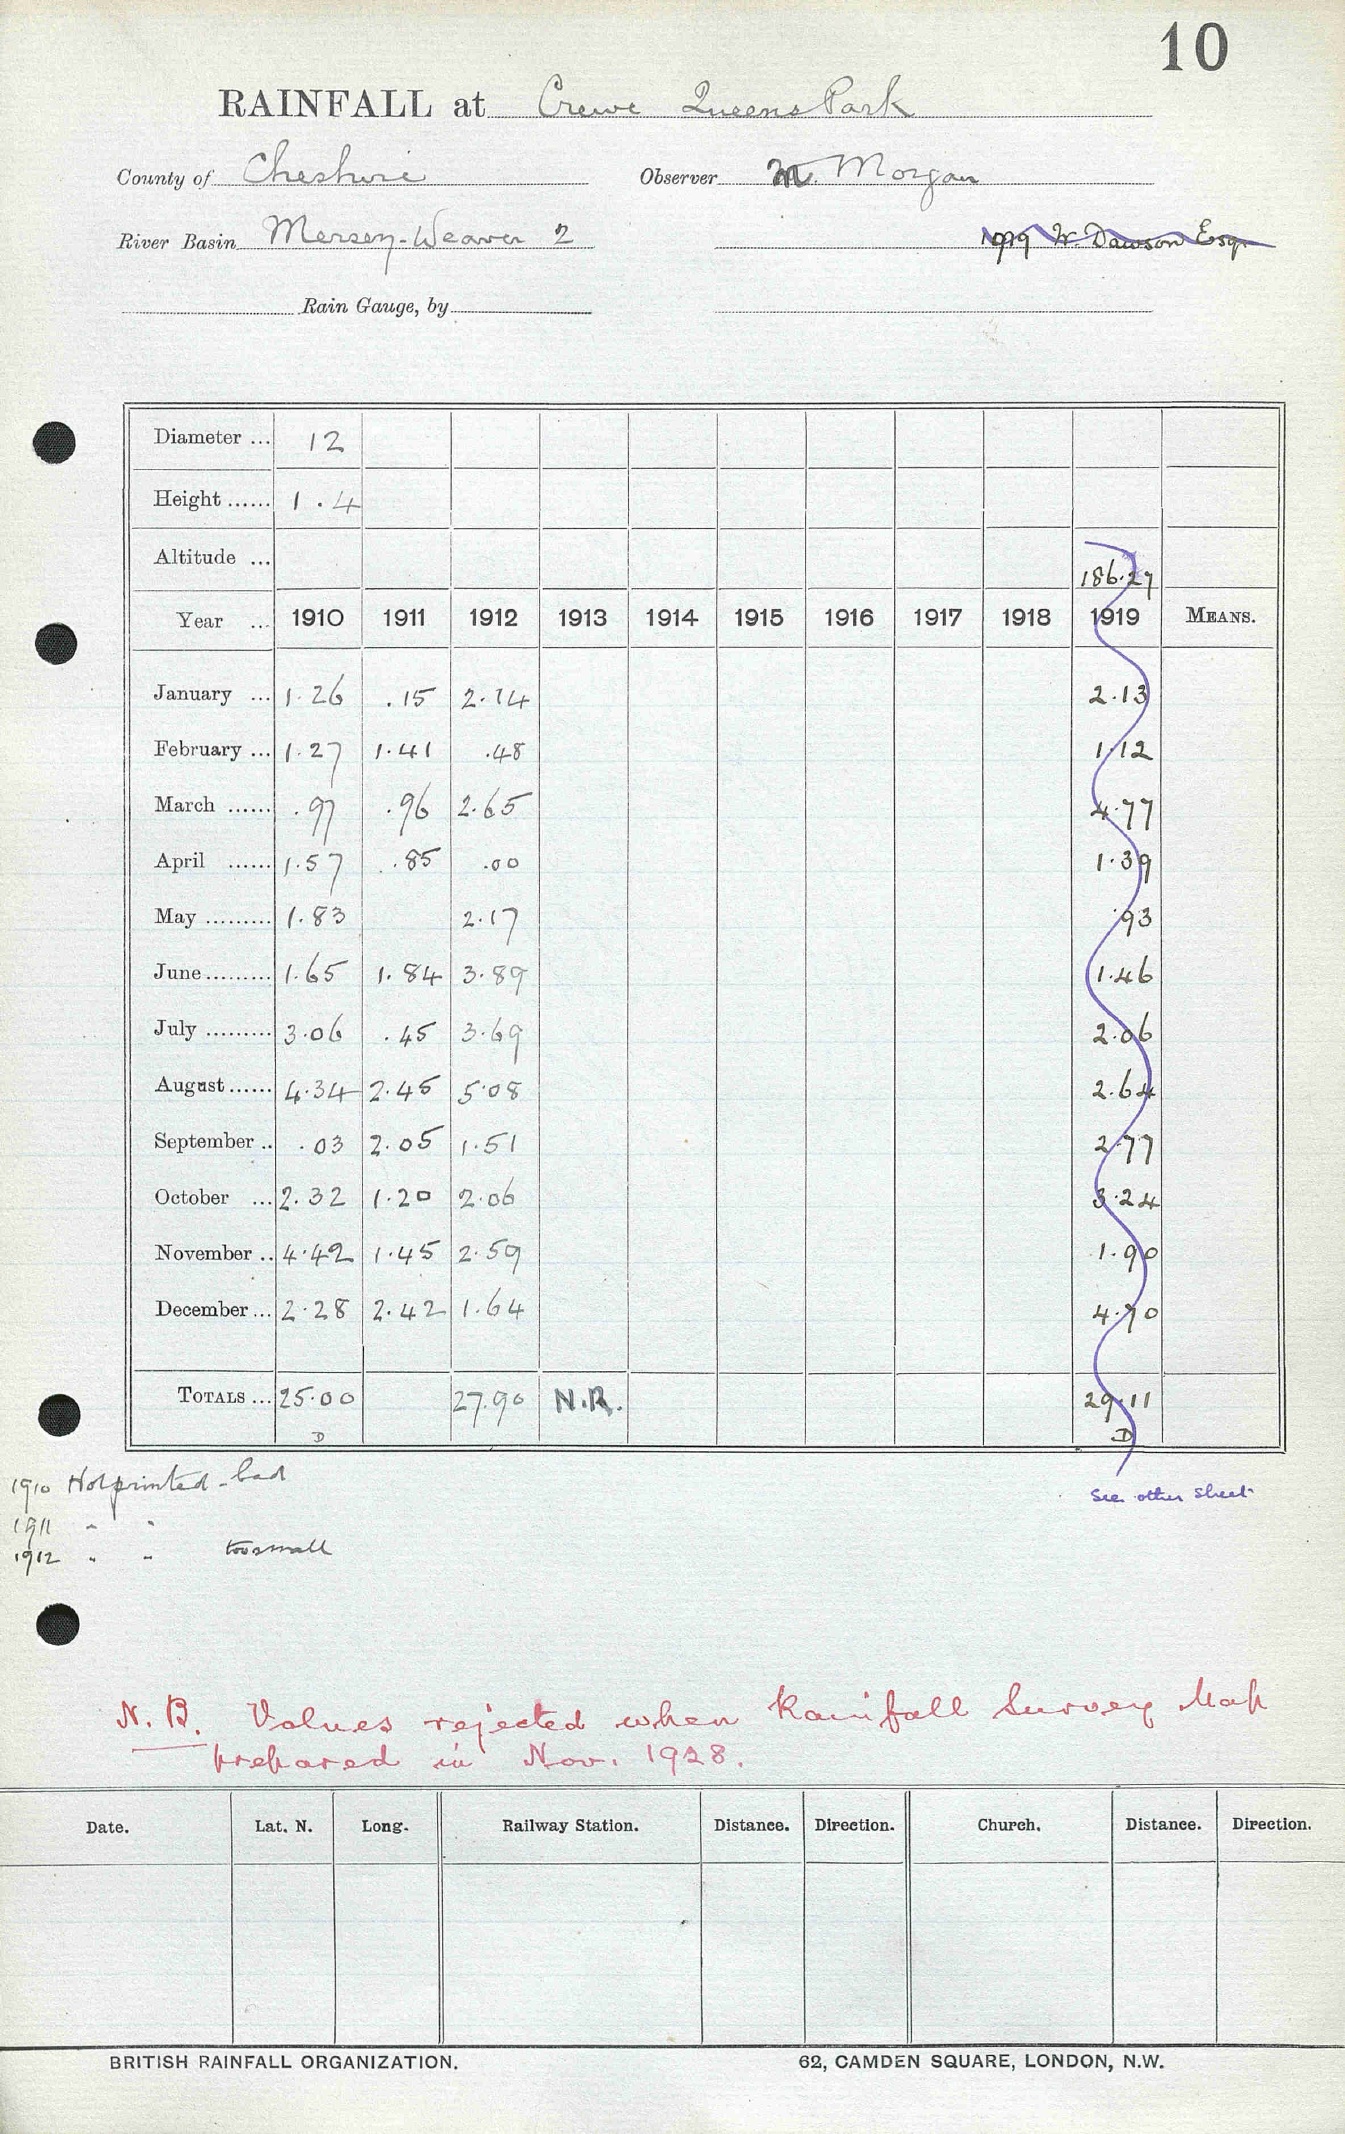 10
RAINFALL at Crewe Queens Park
County of Cheshire Observer M. Morgan
River Basin Mersey-Weaver 2 1919 W. Dawson Esq.
Rain Gauge, by
Diameter ... 12
Height ...... 1.4
Altitude ... 186.27
Year ... 1910 1911 1912 1913 1914 1915 1916 1917 1918 1919 MEANS.
January ... 1.26 .15 2.14 2.13
February ... 1.27 1.41 .48 1.12
March ...... .97 .96 2.65 4.77
April ...... 1.57 .85 .00 1.39
May ......... 1.83 2.17 .93
June ......... 1.65 1.84 3.89 1.46
July ......... 3.06 .45 3.69 2.06
August ...... 4.34 2.45 5.08 2.64
September .. .03 2.05 1.51 2.77
October ... 2.32 1.20 2.06 3.24
November .. 4.42 1.45 2.59 1.90
December ... 2.28 2.42 1.64 4.70
TOTALS ... 25.00 27.90 N.R. 29.11
D D
1910 Not printed - bad
1911 " "
1912 " " too small
See other sheet
N.B. Values rejected when Rainfall Survey Map
prepared in Nov. 1928.
Date. Lat. N. Long. Railway Station. Distance. Direction. Church. Distance. Direction.
BRITISH RAINFALL ORGANIZATION. 62, CAMDEN SQUARE, LONDON, N.W.